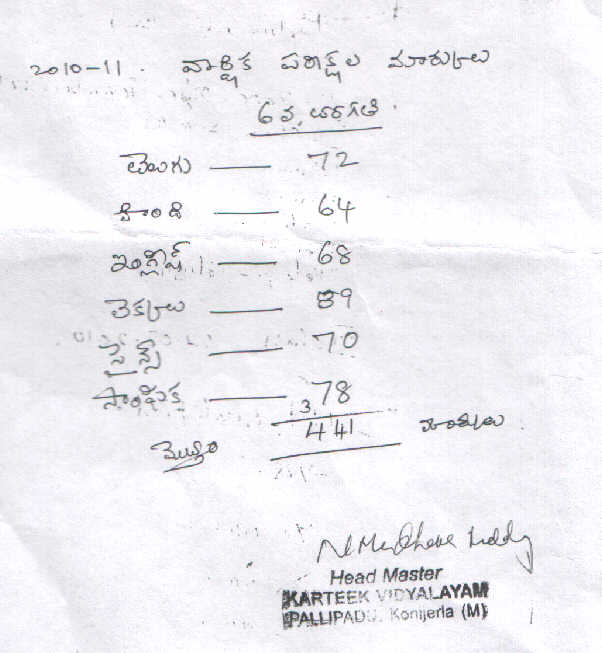 2010-11. వార్షిక పరీక్షల మార్కులు
6వ తరగతి.
తెలుగు — 72
హిందీ — 64
ఇంగ్లీష్ — 68
లెక్కలు — 89
సైన్స్ — 70
సాంఘిక — 78
3
మొత్తం 441 మార్కులు
Head Master
KARTEEK VIDYALAYAM
PALLIPADU. Konijerla (M)